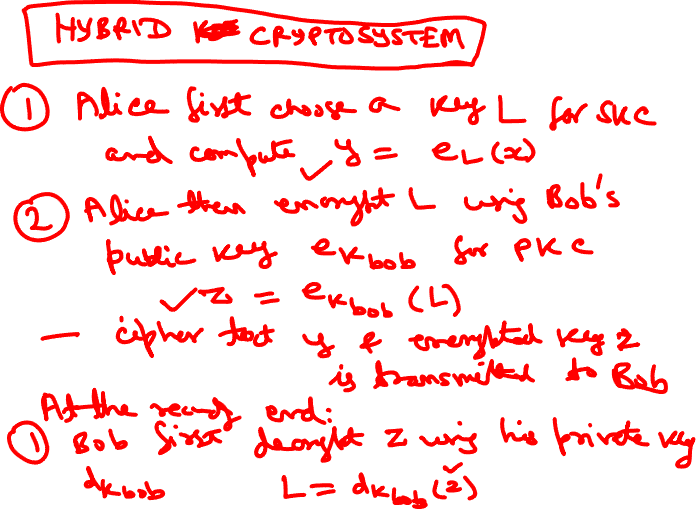 HYBRID CRYPTOSYSTEM
① Alice first choose a key L for SKC
and compute ✓ y = e_L(x)
② Alice then encrypt L using Bob's
public key e_{K_{bob}} for PKC
✓ z = e_{K_{bob}}(L)
— cipher text y & encrypted key z
is transmitted to Bob
At the end:
① Bob first decrypt z using his private key
d_{K_{bob}} L = d_{K_{bob}}(z)